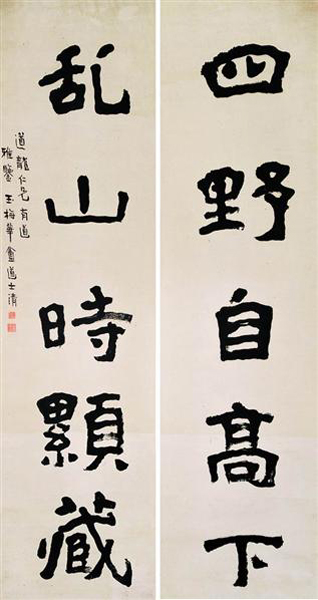 四野自高下
乱山時顯藏
道龍仁兄有道
雅鑒 玉梅華盦道士清